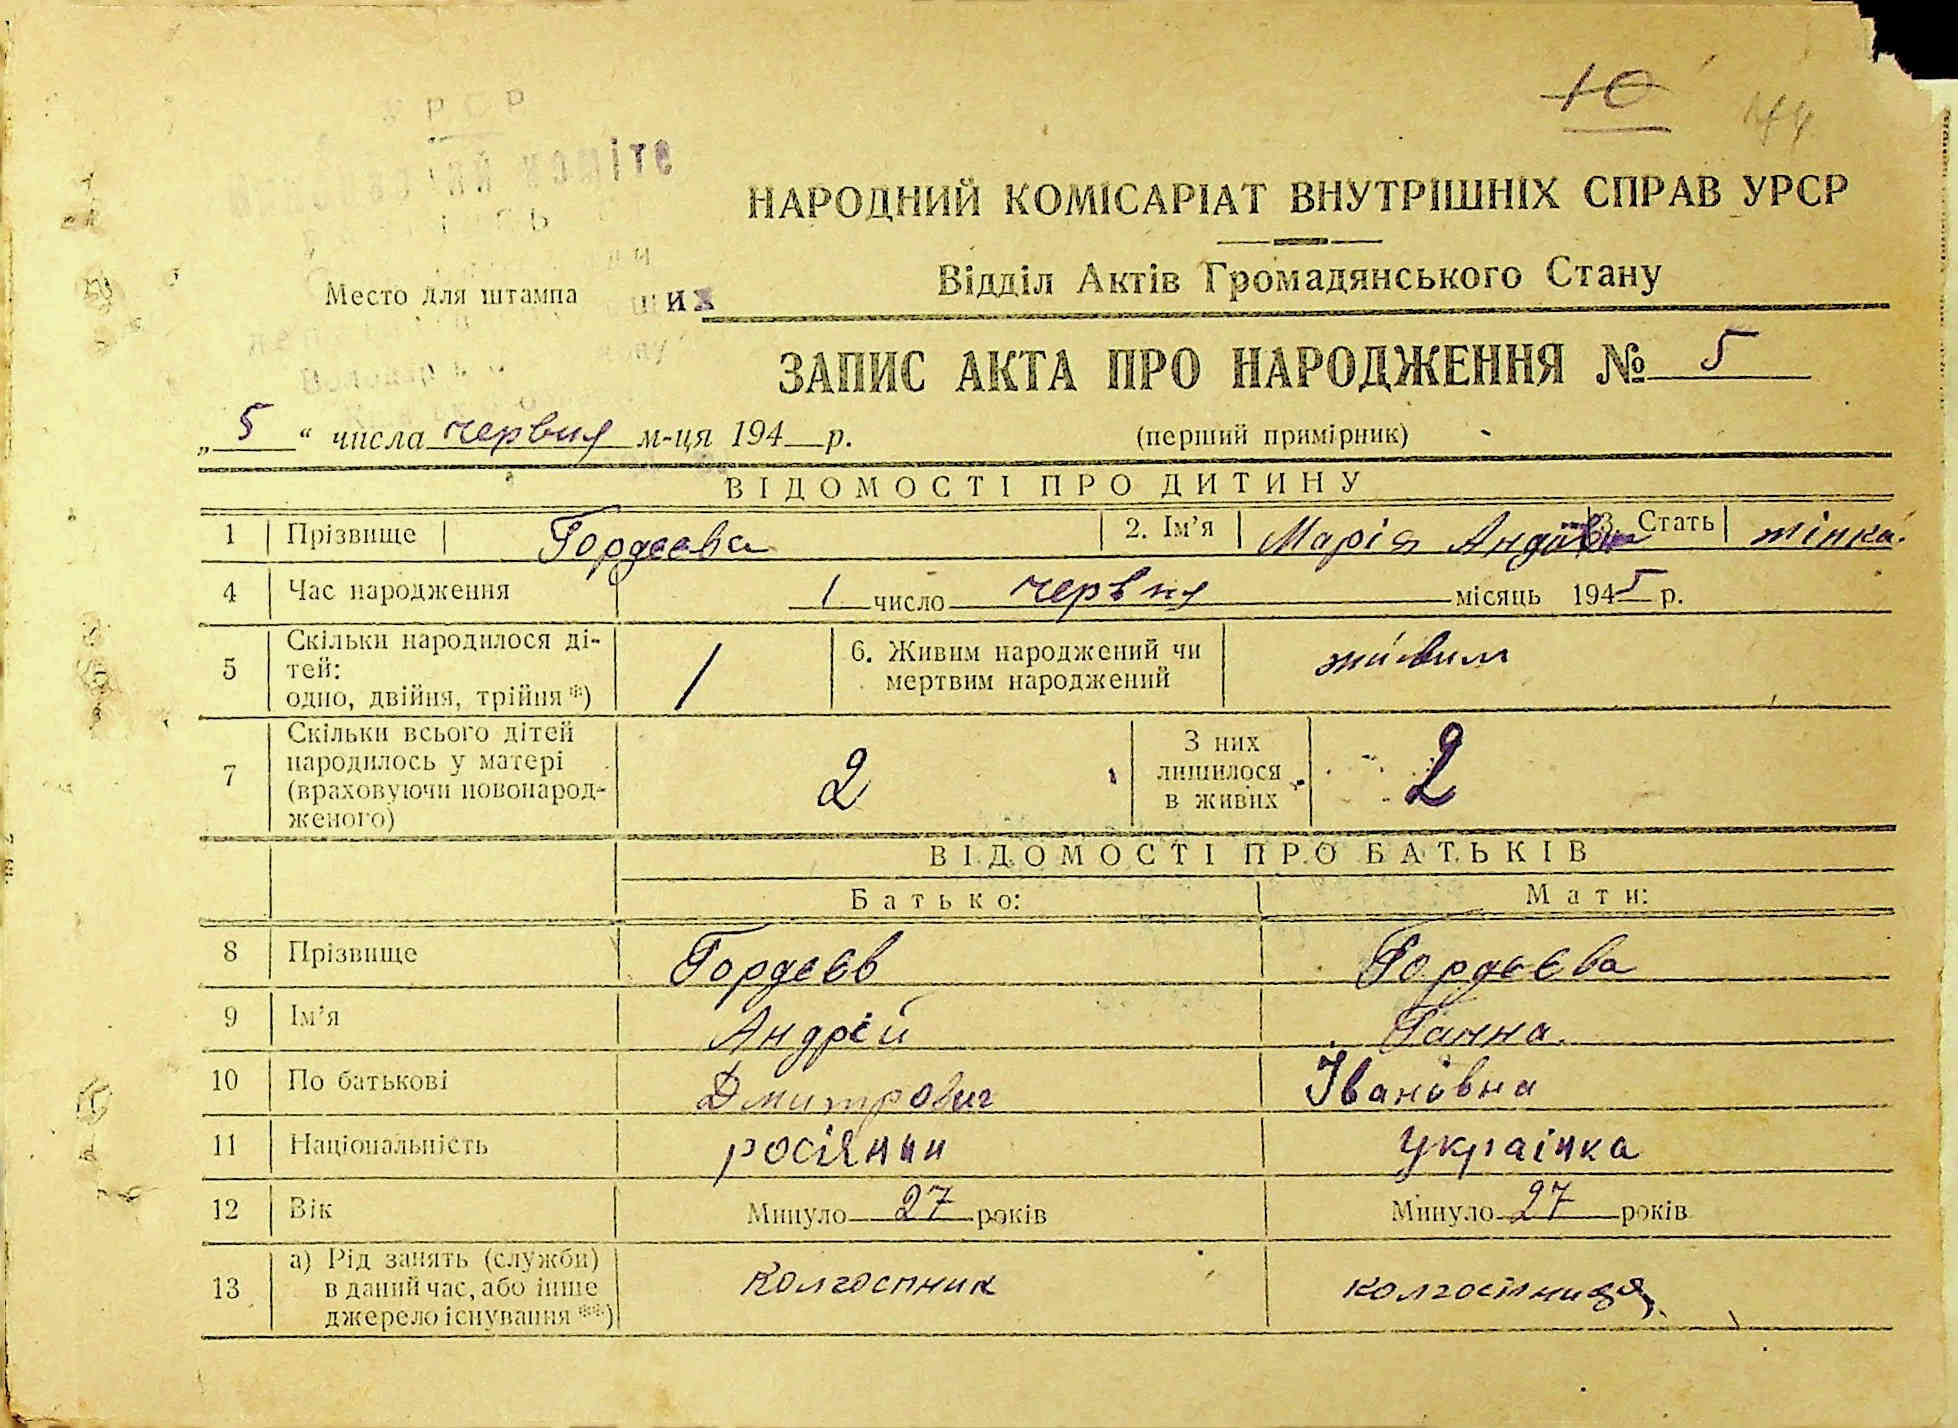 10
УРСР
НАРОДНИЙ КОМІСАРІАТ ВНУТРІШНІХ СПРАВ УРСР
Відділ Актів Громадянського Стану
Место для штампа
ЗАПИС АКТА ПРО НАРОДЖЕННЯ № 5
„5“ числа червня м-ця 194 р. (перший примірник)
ВІДОМОСТІ ПРО ДИТИНУ
1 Прізвище Гордєєва 2. Ім'я Марія 3. Стать жінка.
4 Час народження 1 число червня місяць 1945 р.
5 Скільки народилося ді-
тей:
одно, двійня, трійня *) 1 6. Живим народжений чи
мертвим народжений живим
7 Скільки всього дітей
народилось у матері
(враховуючи новонарод-
женого) 2 З них
лишилося
в живих 2
ВІДОМОСТІ ПРО БАТЬКІВ
Батько: Мати:
8 Прізвище Гордєєв Гордєєва
9 Ім'я Андрій Ганна
10 По батькові Дмитрович Івановна
11 Національність росіянин українка
12 Вік Минуло 27 років Минуло 27 років
13 а) Рід занять (служби)
в даний час, або інше
джерело існування **) Колгоспник колгоспниця